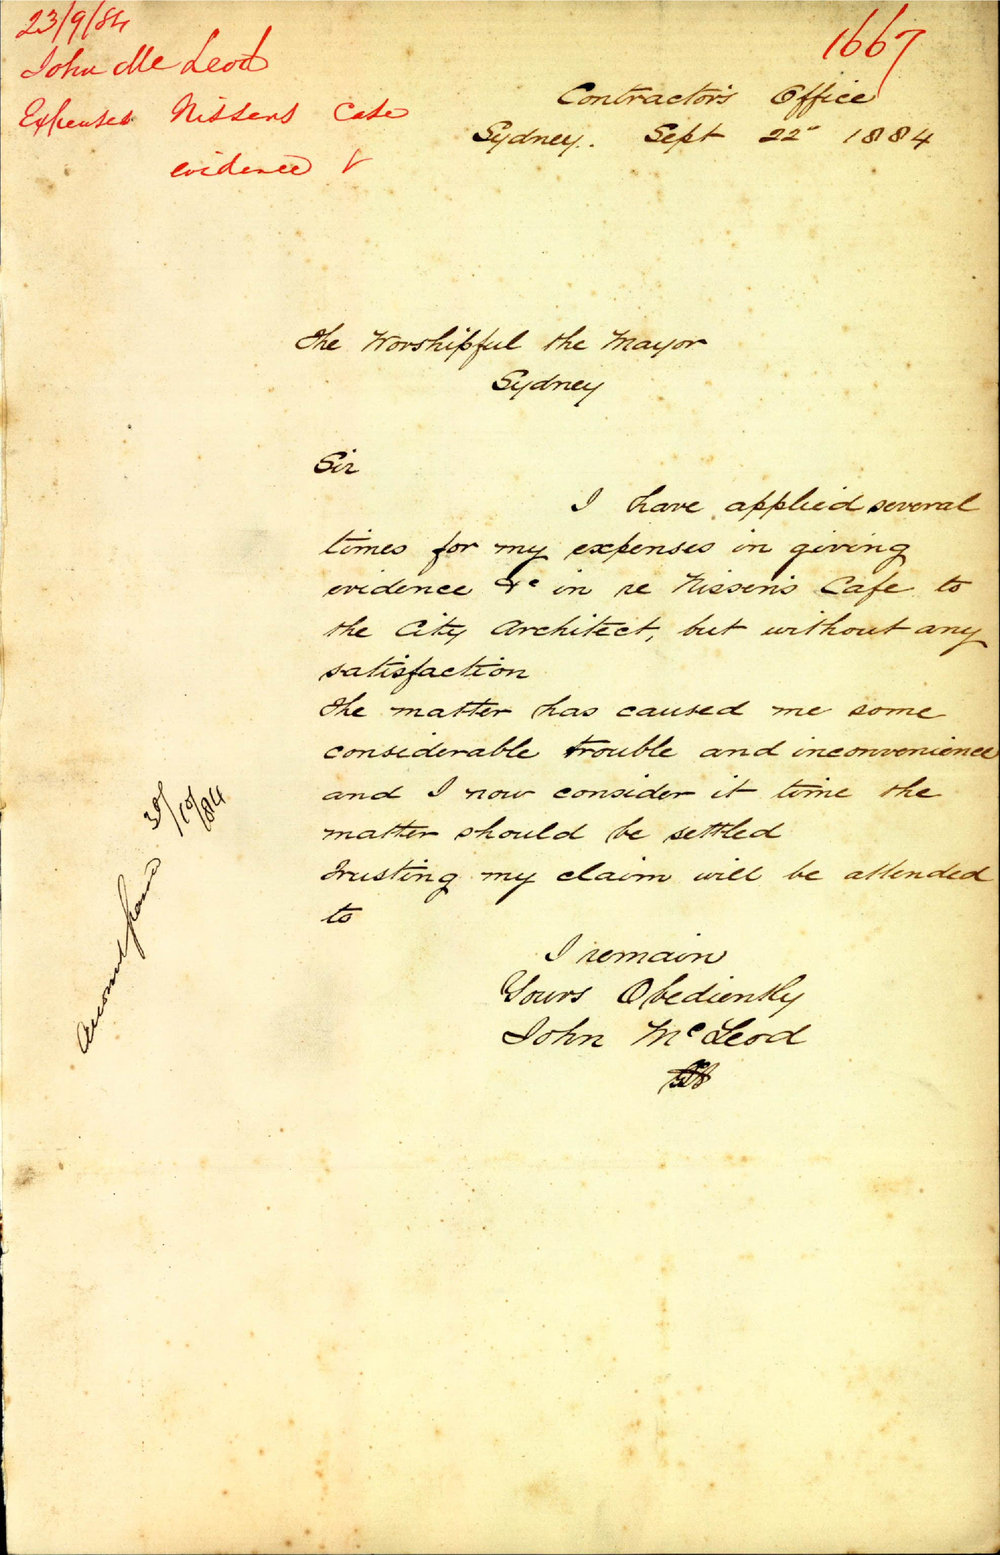 23/9/84
John McLeod
Expenses Nissens Case
evidence
1667
Contractor's Office
Sydney. Sept 22 1884
The Worshipful the Mayor
Sydney
Sir
I have applied several
times for my expenses in giving
evidence &c in re Nissen's Cafe to
the City Architect, but without any
satisfaction
The matter has caused me some
considerable trouble and inconvenience
and I now consider it time the
matter should be settled
Trusting my claim will be attended
to
I remain
Yours Obediently
John McLeod